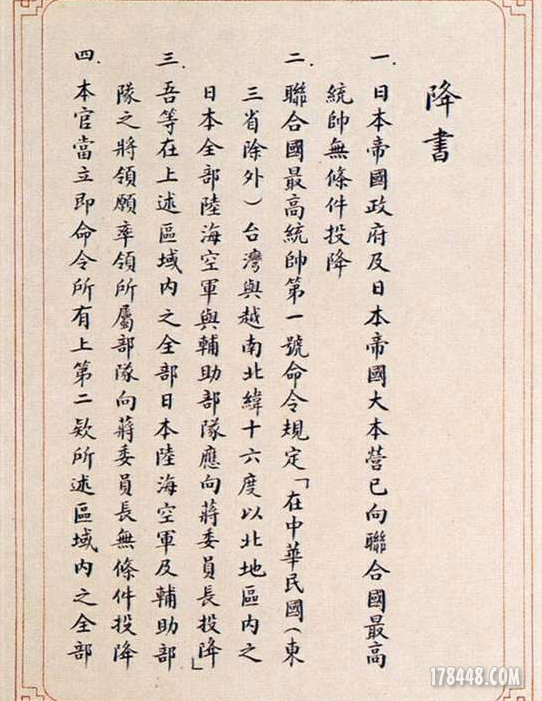 降書
一.日本帝國政府及日本帝國大本營已向聯合國最高
統帥無條件投降
二.聯合國最高統帥第一號命令規定「在中華民國(東
三省除外)台灣與越南北緯十六度以北地區內之
日本全部陸海空軍與輔助部隊應向蔣委員長投降」
三.吾等在上述區域內之全部日本陸海空軍及輔助部
隊之將領願率領所屬部隊向蔣委員長無條件投降
四.本官當立即命令所有上第二欵所述區域內之全部
178448.COM